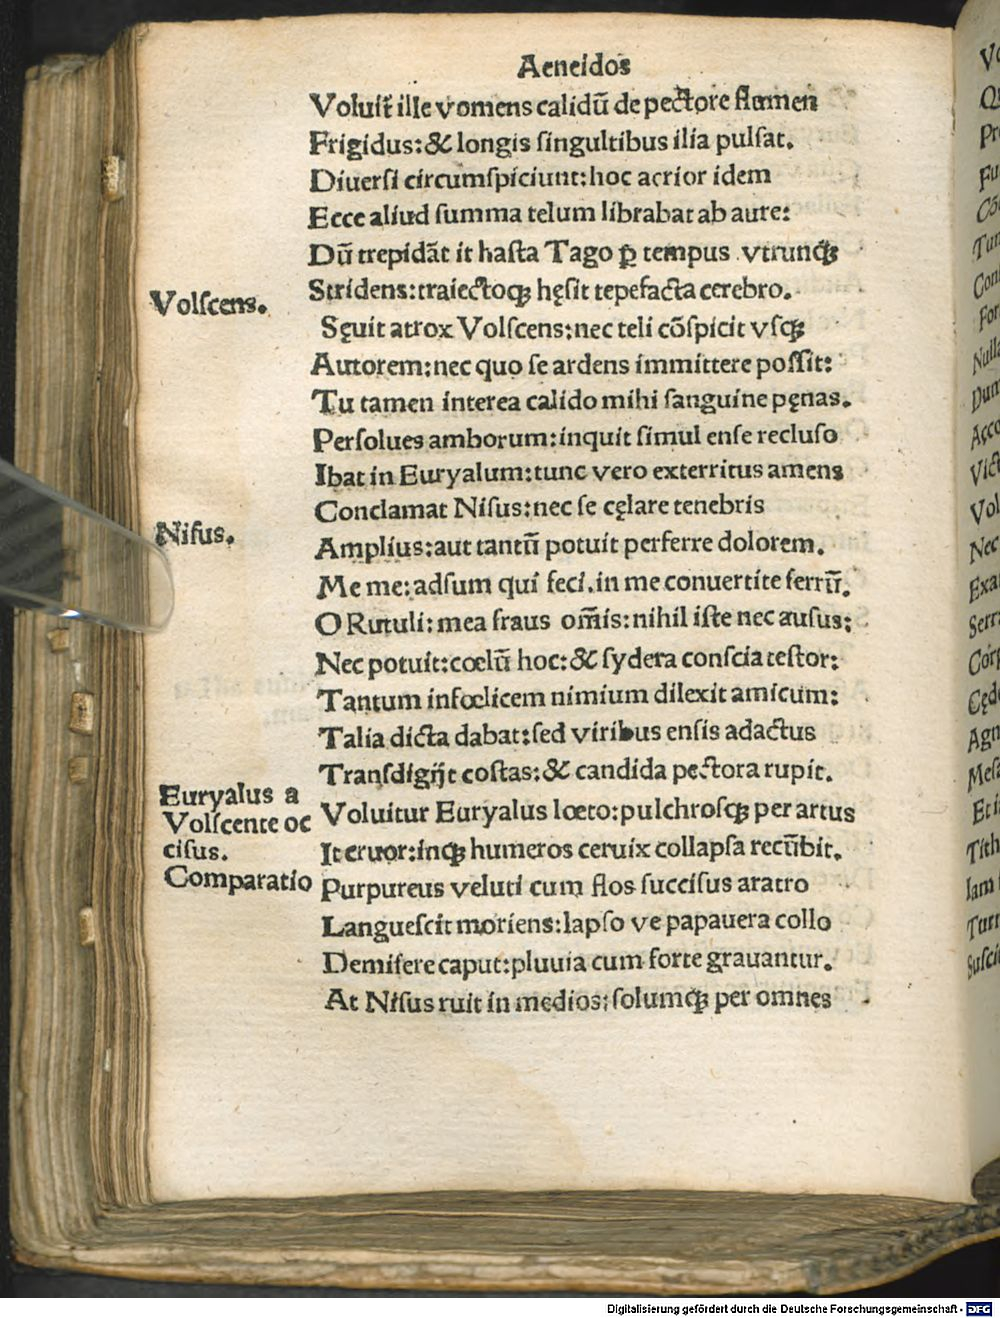 Aeneidos
Voluit̃ ille vomens calidū de pectore flumen
Frigidus:& longis ſingultibus ilia pulſat.
Diuerſi circumſpiciunt:hoc acrior idem
Ecce aliud ſumma telum librabat ab aure:
Dū trepidāt it haſta Tago ꝑ tempus vtrunqꝫ
Volſcens.
Stridens:traiectoqꝫ hęſit tepefacta cerebro.
Sęuit atrox Volſcens:nec teli cōſpicit vſqꝫ
Autorem:nec quo ſe ardens immittere poſſit:
Tu tamen interea calido mihi ſanguine pęnas.
Perſolues amborum:inquit ſimul enſe recluſo
Ibat in Euryalum:tunc vero exterritus amens
Conclamat Niſus:nec ſe cęlare tenebris
Niſus.
Amplius:aut tantū potuit perferre dolorem.
Me me:adſum qui feci.in me conuertite ferrū.
O Rutuli:mea fraus om̄is:nihil iſte nec auſus:
Nec potuit:cœlū hoc:& ſydera conſcia teſtor:
Tantum infœlicem nimium dilexit amicum:
Talia dicta dabat:ſed viribus enſis adactus
Tranſdigijt coſtas:& candida pectora rupit.
Euryalus a
Volſcente oc
ciſus.
Comparatio
Voluitur Euryalus lœto:pulchroſqꝫ per artus
It cruor:inqꝫ humeros ceruix collapſa recūbit.
Purpureus veluti cum flos ſucciſus aratro
Langueſcit moriens:lapſo ve papauera collo
Demiſere caput:pluuia cum forte grauantur.
At Niſus ruit in medios:ſolumqꝫ per omnes
Digitalisierung gefördert durch die Deutsche Forschungsgemeinschaft - DFG